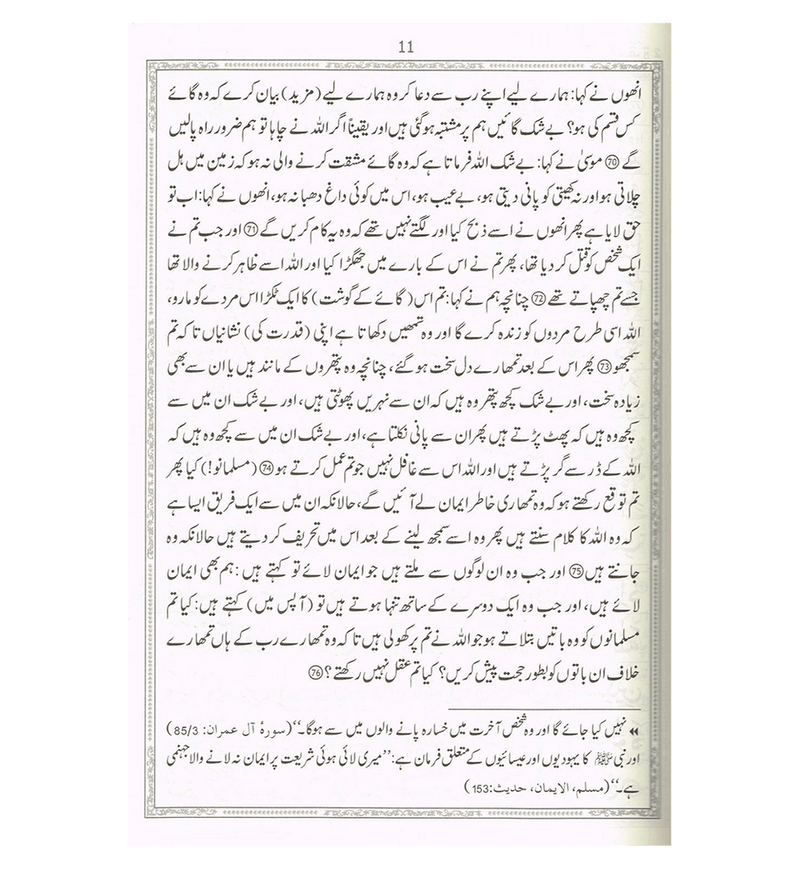 11
انھوں نے کہا: ہمارے لیے اپنے رب سے دعا کر وہ ہمارے لیے (مزید) بیان کرے کہ وہ گائے
کس قسم کی ہو؟ بے شک گائیں ہم پر مشتبہ ہو گئی ہیں اور یقیناً اگر اللہ نے چاہا تو ہم ضرور راہ پالیں
گے ⑦⓪ موسیٰ نے کہا: بے شک اللہ فرماتا ہے کہ وہ گائے مشقت کرنے والی نہ ہو کہ زمین میں ہل
چلاتی ہو اور نہ کھیتی کو پانی دیتی ہو، بے عیب ہو، اس میں کوئی داغ دھبا نہ ہو، انھوں نے کہا: اب تو
حق لایا ہے پھر انھوں نے اسے ذبح کیا اور لگتے نہیں تھے کہ وہ یہ کام کریں گے ⑦① اور جب تم نے
ایک شخص کو قتل کر دیا تھا، پھر تم نے اس کے بارے میں جھگڑا کیا اور اللہ اسے ظاہر کرنے والا تھا
جسے تم چھپاتے تھے ⑦② چنانچہ ہم نے کہا: تم اس (گائے کے گوشت) کا ایک ٹکڑا اس مردے کو مارو،
اللہ اسی طرح مردوں کو زندہ کرے گا اور وہ تمھیں دکھاتا ہے اپنی (قدرت کی) نشانیاں تاکہ تم
سمجھو ⑦③ پھر اس کے بعد تمھارے دل سخت ہو گئے، چنانچہ وہ پتھروں کے مانند ہیں یا ان سے بھی
زیادہ سخت، اور بے شک کچھ پتھر وہ ہیں کہ ان سے نہریں پھوٹتی ہیں، اور بے شک ان میں سے
کچھ وہ ہیں کہ پھٹ پڑتے ہیں پھر ان سے پانی نکلتا ہے، اور بے شک ان میں سے کچھ وہ ہیں کہ
اللہ کے ڈر سے گر پڑتے ہیں اور اللہ اس سے غافل نہیں جو تم عمل کرتے ہو ⑦④ (مسلمانو!) کیا پھر
تم توقع رکھتے ہو کہ وہ تمھاری خاطر ایمان لے آئیں گے، حالانکہ ان میں سے ایک فریق ایسا ہے
کہ وہ اللہ کا کلام سنتے ہیں پھر وہ اسے سمجھ لینے کے بعد اس میں تحریف کر دیتے ہیں حالانکہ وہ
جانتے ہیں ⑦⑤ اور جب وہ ان لوگوں سے ملتے ہیں جو ایمان لائے تو کہتے ہیں: ہم بھی ایمان
لائے ہیں، اور جب وہ ایک دوسرے کے ساتھ تنہا ہوتے ہیں تو (آپس میں) کہتے ہیں: کیا تم
مسلمانوں کو وہ باتیں بتلاتے ہو جو اللہ نے تم پر کھولی ہیں تاکہ وہ تمھارے رب کے ہاں تمھارے
خلاف ان باتوں کو بطور حجت پیش کریں؟ کیا تم عقل نہیں رکھتے؟ ⑦⑥
◂◂ نہیں کیا جائے گا اور وہ شخص آخرت میں خسارہ پانے والوں میں سے ہوگا۔“ (سورۂ آل عمران: 85/3)
اور نبی ﷺ کا یہودیوں اور عیسائیوں کے متعلق فرمان ہے: ”میری لائی ہوئی شریعت پر ایمان نہ لانے والا جہنمی
ہے۔“ (مسلم، الایمان، حدیث: 153)